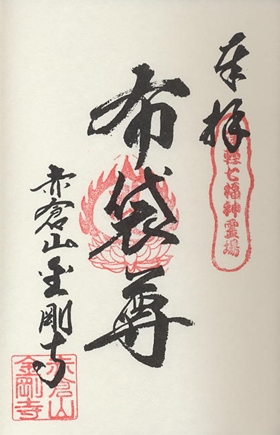 奉拝
七福神霊場
布袋尊
赤倉山金剛寺
赤倉山
金剛寺